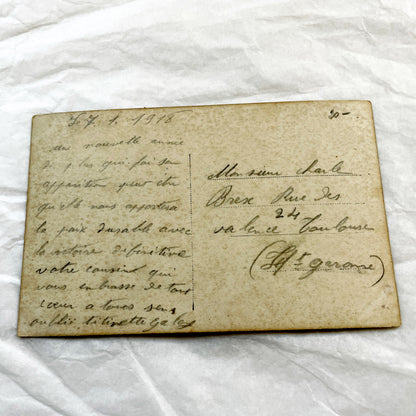 Le 7. 1. 1918
une nouvelle année
de plus qui fai son
apparition peut etre
qu'elle nous apportera
la paix durable avec
la victoire définitive
votre cousine qui
vous en brasse de tout
cœur a tous sens
oublié titinette
30-
Monsieur charle
Brex Rue des
24
valence Toulouse
(Hte garonne)